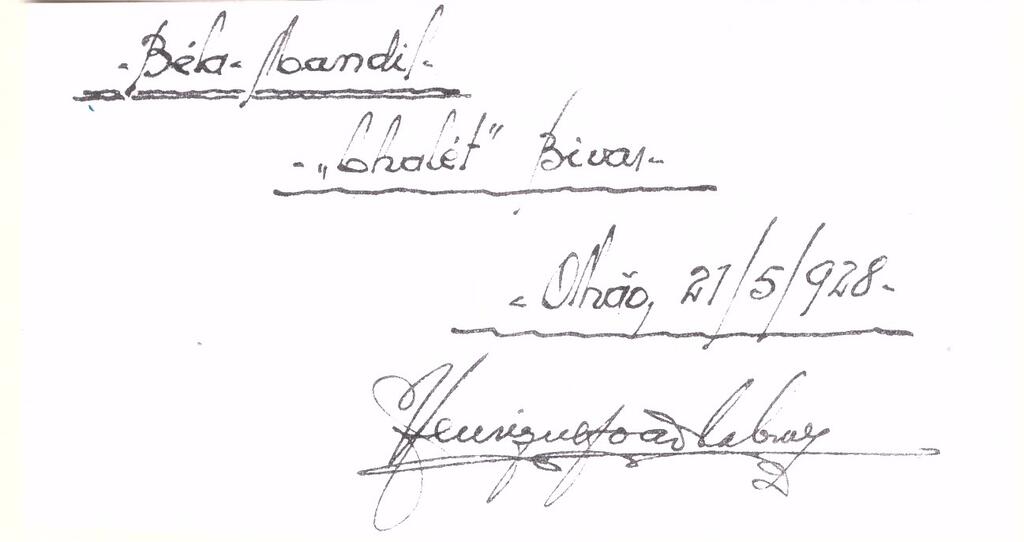 - Béla - Mandil -
- „Chalét" Bivar -
- Olhão, 21/5/928 -
Henrique João Cabral